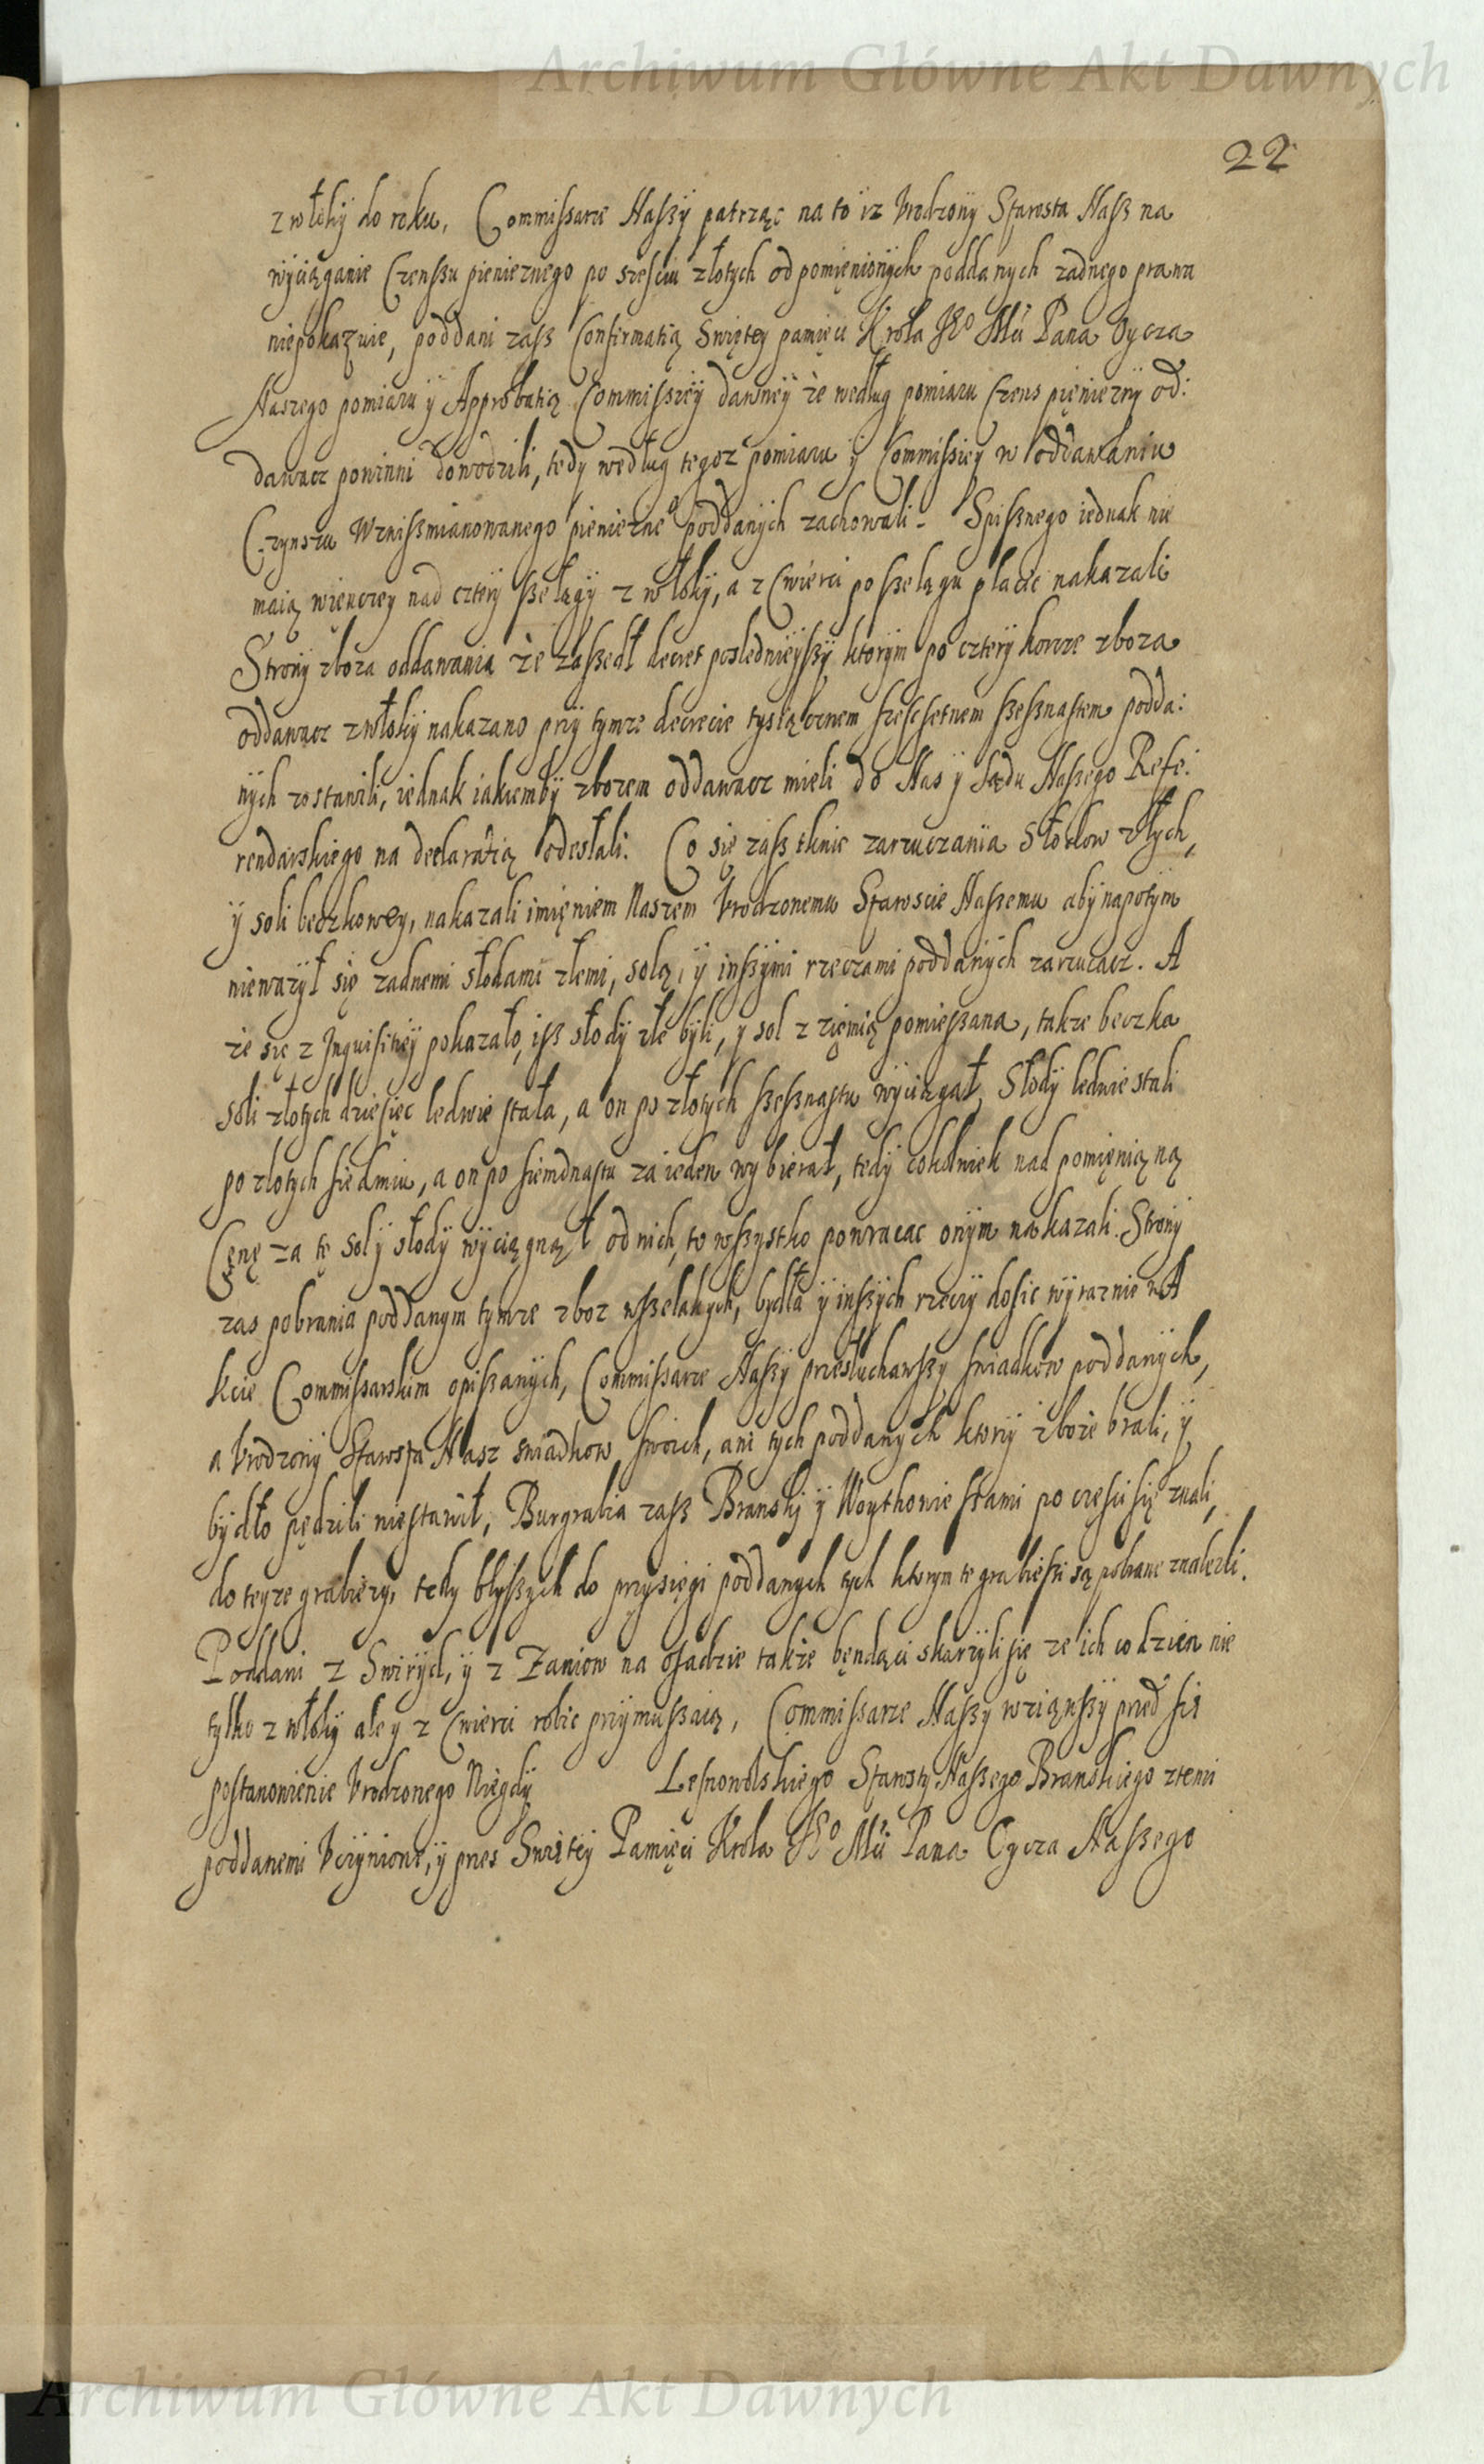 Archiwum Główne Akt Dawnych
22
z włoky do roku, Commissarze Naszy patrząc na to iz Urodzony Starosta Nasz na
wyciąganie Czenszu pienieznego po szesciu złotych od pomienionych poddanych zadnego prawa
niepokazuie, poddani zasz Confirmatią Swiętey pamięci Krola J° Mći Pana Oycza
Naszego pomiaru y Approbatią Commissiey dawney ze według pomiaru Czens pięniezny od:
dawacz powinni dowodzili, tedy według tegoz pomiaru y Commissiey w oddawaniu
Czynszu Wznissmianowanego pieniezne° poddanych zachowali. Spisznego iednak nie
maią więnczey nad cztery szelągy z włoky, a z Cwierci po szelągu płacic nakazali
Strony zboza oddawania ze zaszedł decret poslednieyszy ktorym po cztery korcze zboza
oddawacz z włoky nakazano przy tymze decrecie tysiącznem szescsetnem szesznastem podda:
nych zostawili, iednak iakiemby zbozem oddawacz mieli do Nas y Sądu Naszego Refe:
rendarskiego na declaratią odesłali. Co się zasz tknie zarzuczania Słodow złych,
y soli beczkowey, nakazali imięniem Naszem Urodzonemu Staroscie Naszemu aby napotym
niewazył się zadnemi słodami złemi, solą, y inszymi rzeczami poddanych zarzucacz. A
ze się z Inquisitiey pokazało, isz słody złe byli, y sol z zięmią pomieszana, takze beczka
soli złotych dziesięc ledwie stała, a on po złotych szesznastu wyciągał, Słody ledwie stali
po złotych siedmiu, a on po siemdnastu za ieden wybierał, tedy cokolwiek nad pomięnią ną
Cenę za tę sol y słody wyciągnął od nich, to wszystko powracac onym nakazali. Strony
zas pobrania poddanym tymze zboz wszelakych, bydła y inszych rzeczy dosic wyraznie w A
kcie Commissarskim opiszanych, Commissarze Naszy przesłuchawszy swiadkow poddanych,
a Urodzony Starosta Nasz swiadkow swoich, ani tych poddanych ktory zboze brali, y
bydło pędzili niestawił, Burgrabia zasz Bransky y Woythowie sami po częsci się znali,
do teyze grabiezy, tedy blyszych do przysięgi poddanych tych ktorym te grabieszi są pobrane znalezli.
Poddani z Swiryd, y z Zaniow na osadzie takze bęndąci skarzyli się ze ich co dzien nie
tylko z włoky ale y z Cwierci robic przymuszaią, Commissarze Naszy wziąnszy przed się
postanowienie Urodzonego Niegdy Lesnowolskiego Starosty Naszego Branskiego z temi
poddanemi Uczynione, y przes Swiętey Pamięci Krola J° Mći Pana Oycza Naszego
Archiwum Główne Akt Dawnych